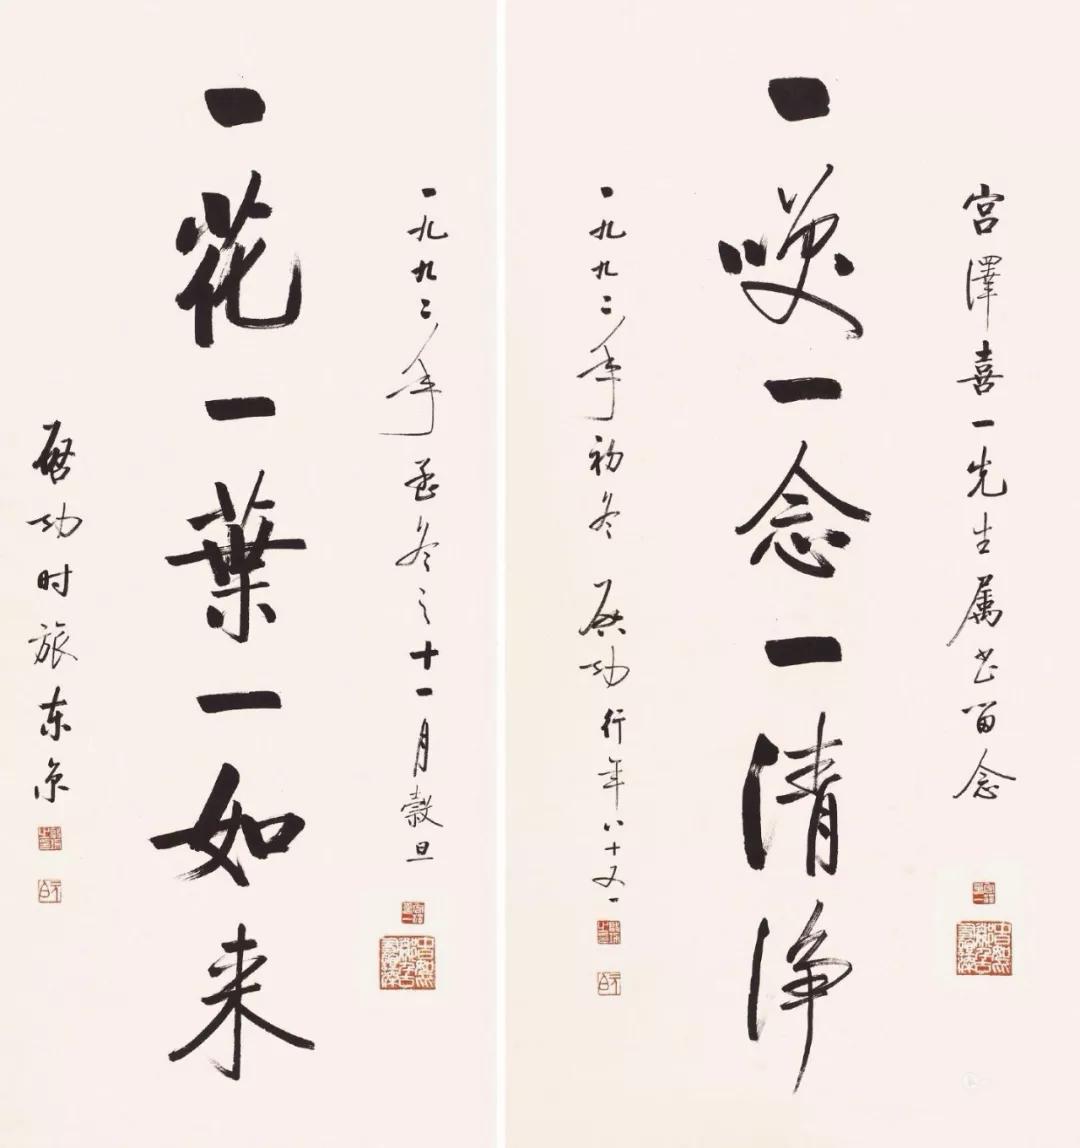 宫澤喜一先生属书留念
一咲一念一清浄
一九九二年初冬 启功 行年八十又一
一九九二年孟冬之十一月穀旦
一花一葉一如来
启功时旅东京